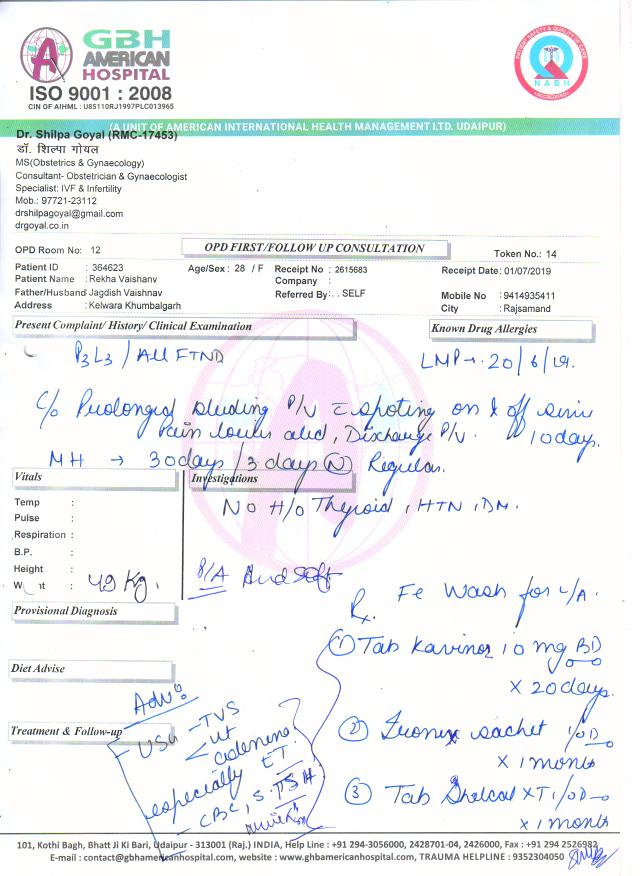 GBH
AMERICAN
HOSPITAL
ISO 9001 : 2008
CIN OF AIHML : U85110RJ1997PLC013965
PATIENT SAFETY & QUALITY OF CARE
NABH
(A UNIT OF AMERICAN INTERNATIONAL HEALTH MANAGEMENT LTD. UDAIPUR)
Dr. Shilpa Goyal (RMC-17453)
डॉ. शिल्पा गोयल
MS(Obstetrics & Gynaecology)
Consultant- Obstetrician & Gynaecologist
Specialist: IVF & Infertility
Mob.: 97721-23112
drshilpagoyal@gmail.com
drgoyal.co.in
OPD Room No: 12
OPD FIRST/FOLLOW UP CONSULTATION
Token No.: 14
Patient ID : 364623 Age/Sex : 28 / F Receipt No : 2615683 Receipt Date: 01/07/2019
Patient Name : Rekha Vaishanv Company :
Father/Husband Jagdish Vaishnav Referred By: . . SELF Mobile No : 9414935411
Address : Kelwara Khumbalgarh City : Rajsamand
Present Complaint/ History/ Clinical Examination
Known Drug Allergies
P3L3 / All FTND
LMP → 20/6/19.
C/o Prolonged bleeding P/V c̄ spoting on & off since
pain lower abd, Discharge P/V. 10 days.
MH → 30days / 3 days (N) Regular.
Vitals
Investigations
No H/o Thyroid, HTN, DM.
Temp :
Pulse :
Respiration :
B.P. :
Height :
W nt : 49 Kg.
P/A And Soft
Provisional Diagnosis
Rx. Fe Wash for L/A.
① Tab 10 mg BD
× 20days.
Diet Advise
Adv:
Treatment & Follow-up
- USG - TVS
ut
especially ET.
- CBC, S. TSH
② sachet 1/OD
× 1 month
③ Tab Shelcal XT 1/OD
× 1 month
101, Kothi Bagh, Bhatt Ji Ki Bari, Udaipur - 313001 (Raj.) INDIA, Help Line : +91 294-3056000, 2428701-04, 2426000, Fax : +91 294 2526982
E-mail : contact@gbhamericanhospital.com, website : www.gbhamericanhospital.com, TRAUMA HELPLINE : 9352304050